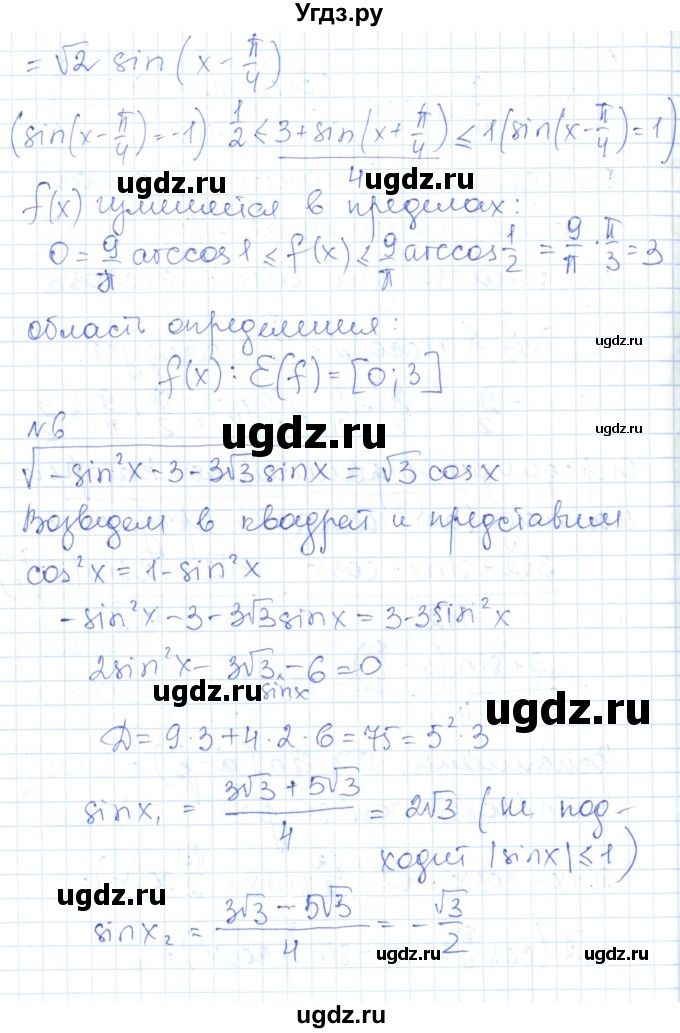 Угдз.ру
= √2 sin(x - π/4)
(sin(x - π/4) = -1) 1/2 ≤ (3 + sin(x + π/4))/4 ≤ 1 (sin(x - π/4) = 1)
ugdz.ru ugdz.ru
f(x) в пределах:
0 = 9/π arccos 1 ≤ f(x) ≤ 9/π arccos 1/2 = 9/π · π/3 = 3
ugdz.ru
область определения:
ugdz.ru
f(x): E(f) = [0; 3]
№6
ugdz.ru
√(-sin²x - 3 - 3√3 sinx) = √3 cosx
Возведем в квадрат и представим
cos²x = 1 - sin²x
ugdz.ru
-sin²x - 3 - 3√3 sinx = 3 - 3sin²x
2sin²x - 3√3 sinx - 6 = 0
ugdz.ru
ugdz.ru
Д = 9·3 + 4·2·6 = 75 = 5²·3
sinx₁ = (3√3 + 5√3)/4 = 2√3 (не под-
ходит |sinx| ≤ 1)
ugdz.ru
ugdz.ru
sinx₂ = (3√3 - 5√3)/4 = -√3/2